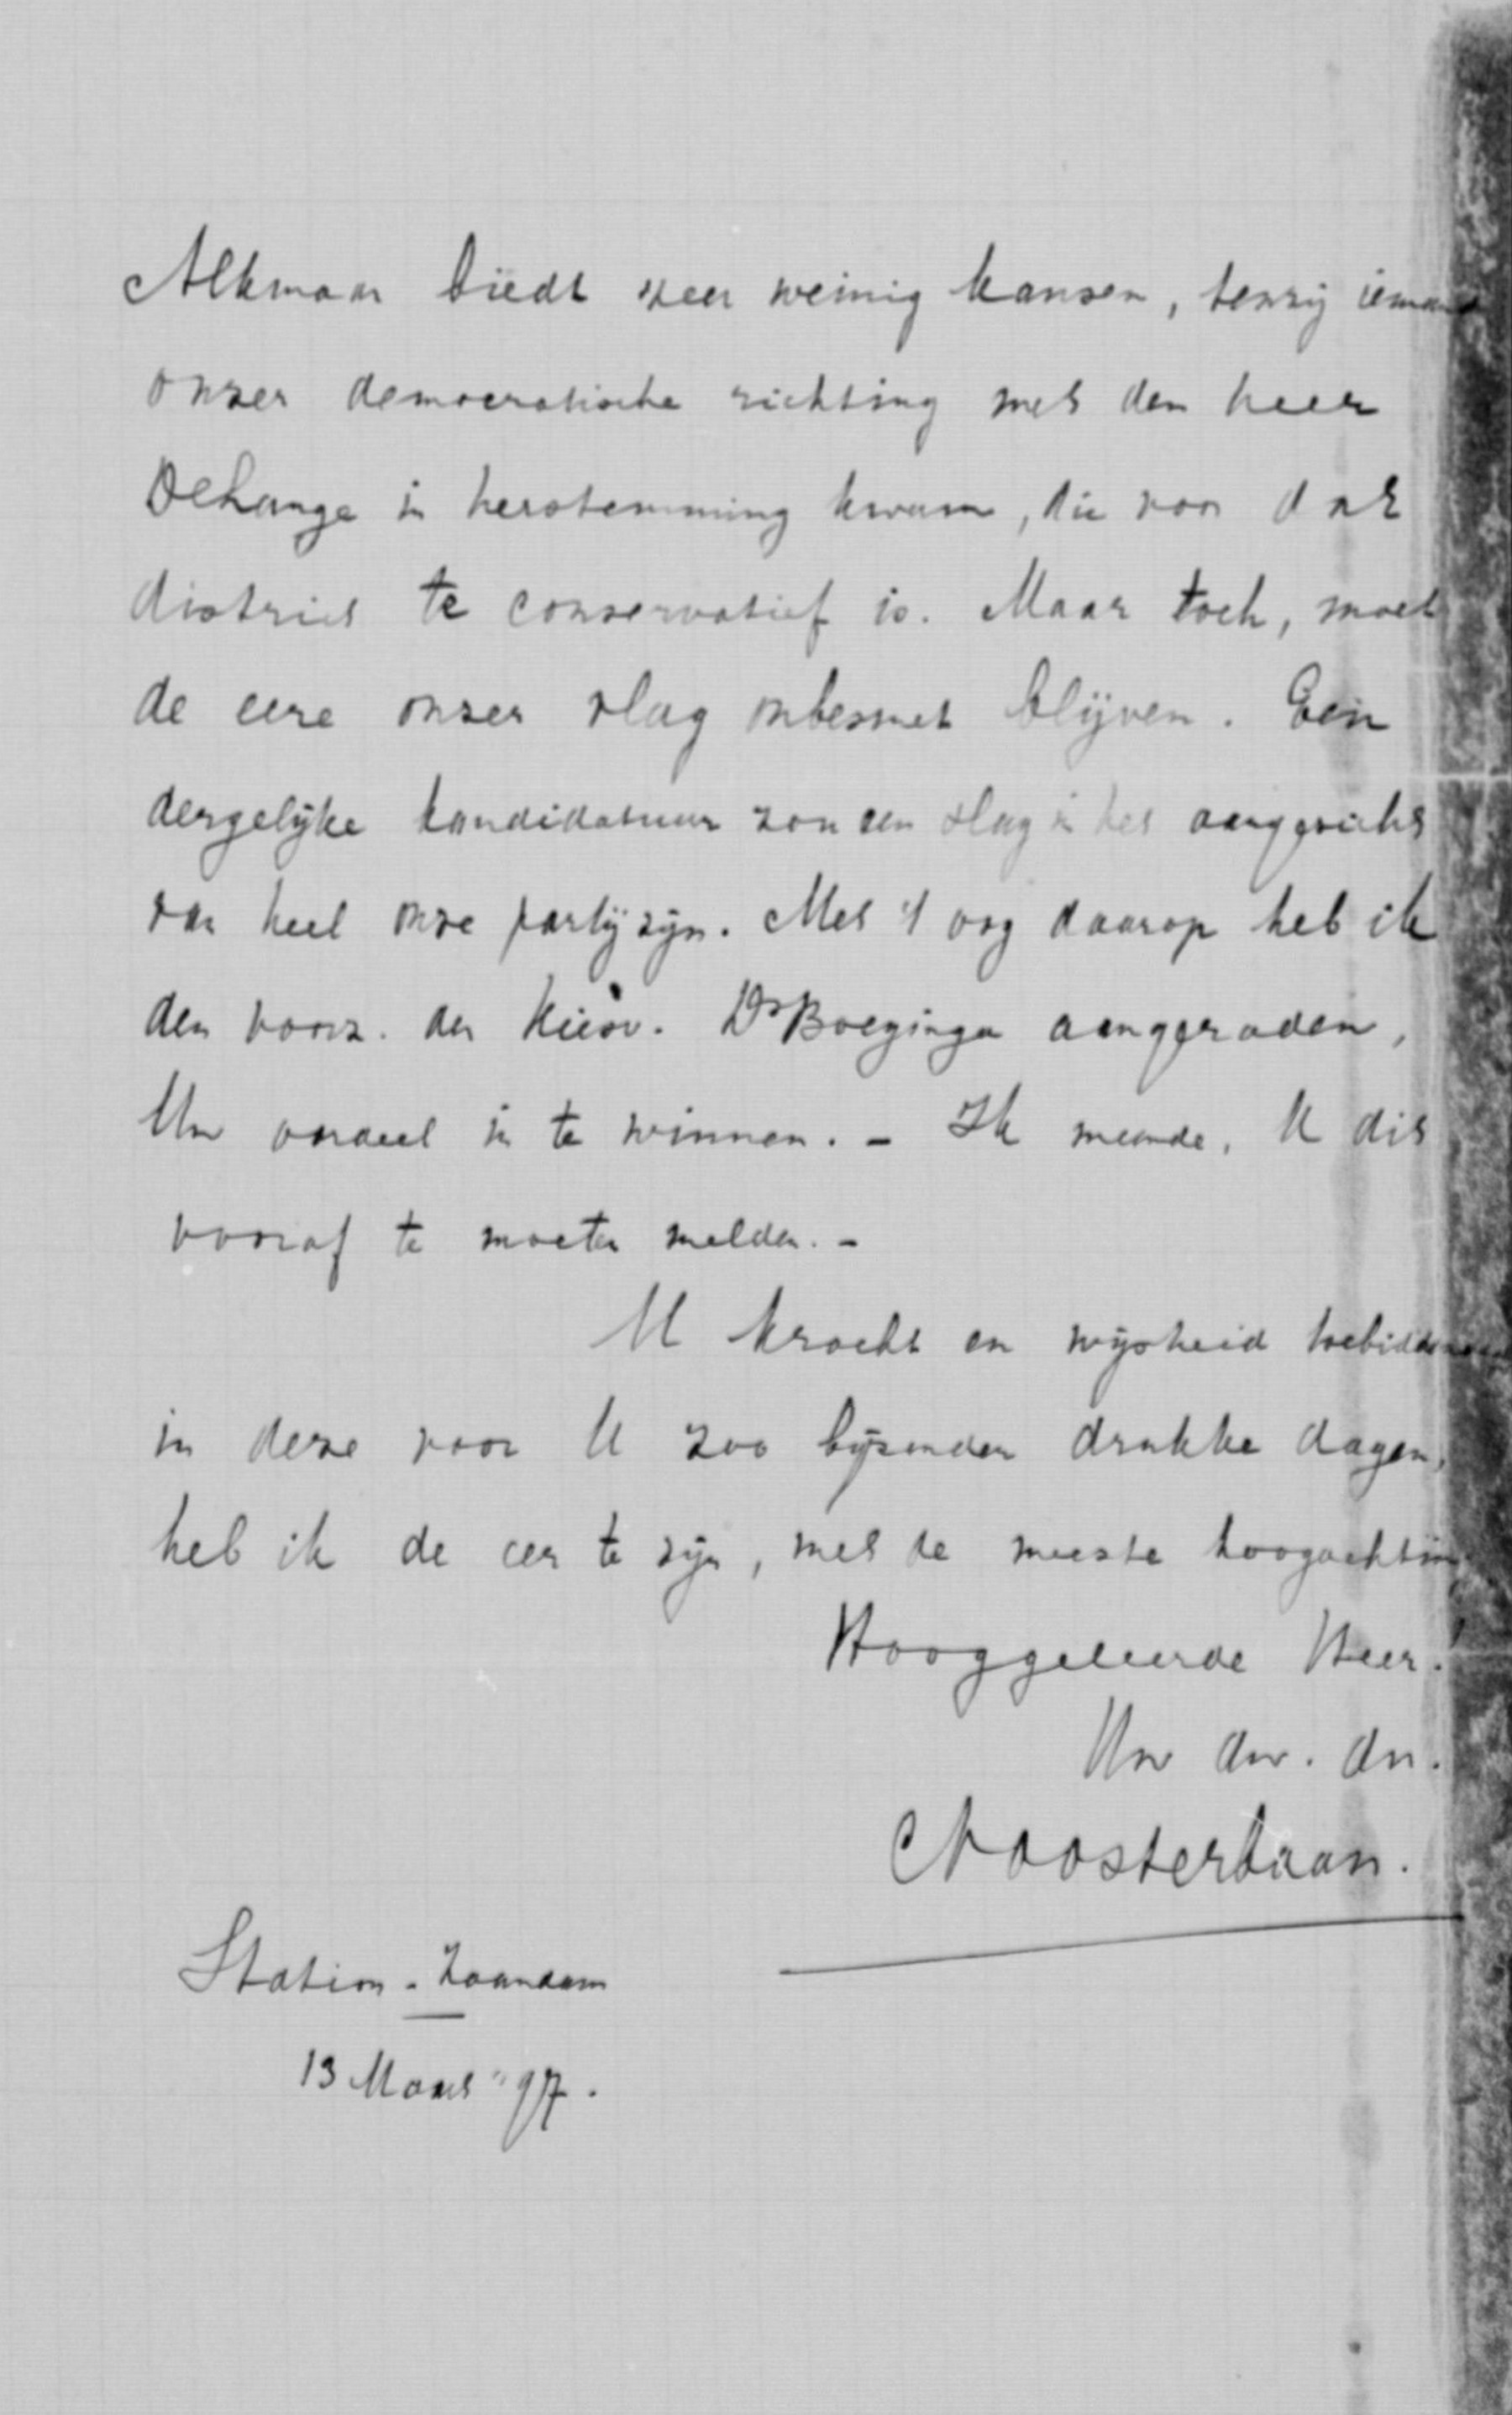 Alkmaar biedt zeer weinig kansen, tenzij iemand
onzer democratische richting met den heer
DeLange in herstemming kwam, die voor dat
district te conservatief is. Maar toch, moet
de eere onzer vlag onbesmet blijven. Een
dergelijke kandidatuur zou een slag in het aangezicht
van heel onze partij zijn. Met 't oog daarop heb ik
den voorz. der Kiesv. Ds Boeijinga aangeraden,
Uw oordeel in te winnen. – Ik meende, U dit
vooraf te moeten melden. –
U kracht en wijsheid toebiddend
in deze voor U zoo bijzonder drukke dagen,
heb ik de eer te zijn, met de meeste hoogachting
Hooggeleerde Heer!
Uw dw. dn.
Noosterbaan.
Station - Zaandam
13 Maart "97.